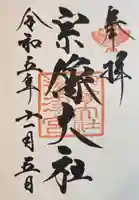 奉拝
宗像大社
令和五年十一月五日